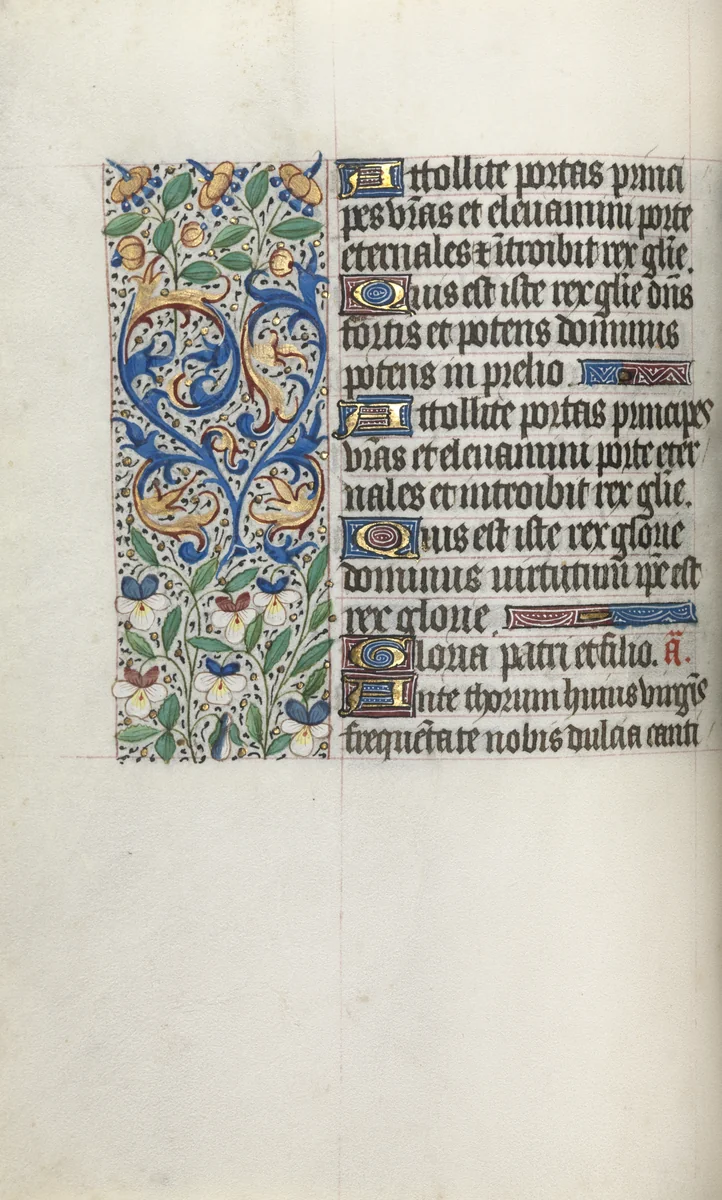 Attollite portas princi
pes vr̄as et eleuamini porte
eternales ⁊ ītroibit rex gl̄ie.
Quis est iste rex gl̄ie dn̄s
fortis et potens dominus
potens in prelio
Attollite portas principes
vr̄as et eleuamini porte eter
nales et introibit rex gl̄ie.
Quis est iste rex glorie
dominus uirtutum ip̄e est
rex glorie.
Gloria patri et filio. ā.
Ante thorum huius virgīs
frequētate nobis dulcia canti